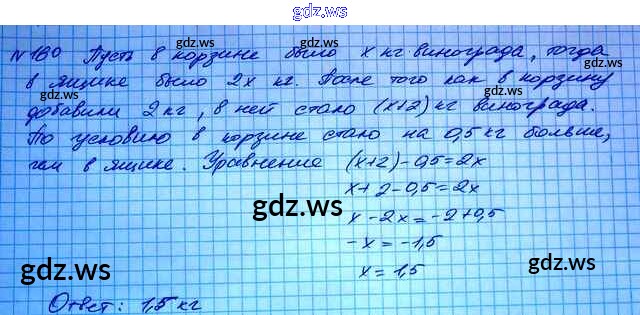 gdz.ws
№160 Пусть в корзине было x кг винограда, тогда
в ящике было 2x кг. После того как в корзину
добавили 2 кг, в ней стало (x+2) кг винограда.
По условию в корзине стало на 0,5 кг больше,
чем в ящике. Уравнение (x+2)-0,5=2x
x+2-0,5=2x
x-2x=-2+0,5
-x=-1,5
x=1,5
Ответ: 1,5 кг
gdz.ws
gdz.ws
gdz.ws
gdz.ws
gdz.ws
gdz.ws
gdz.ws